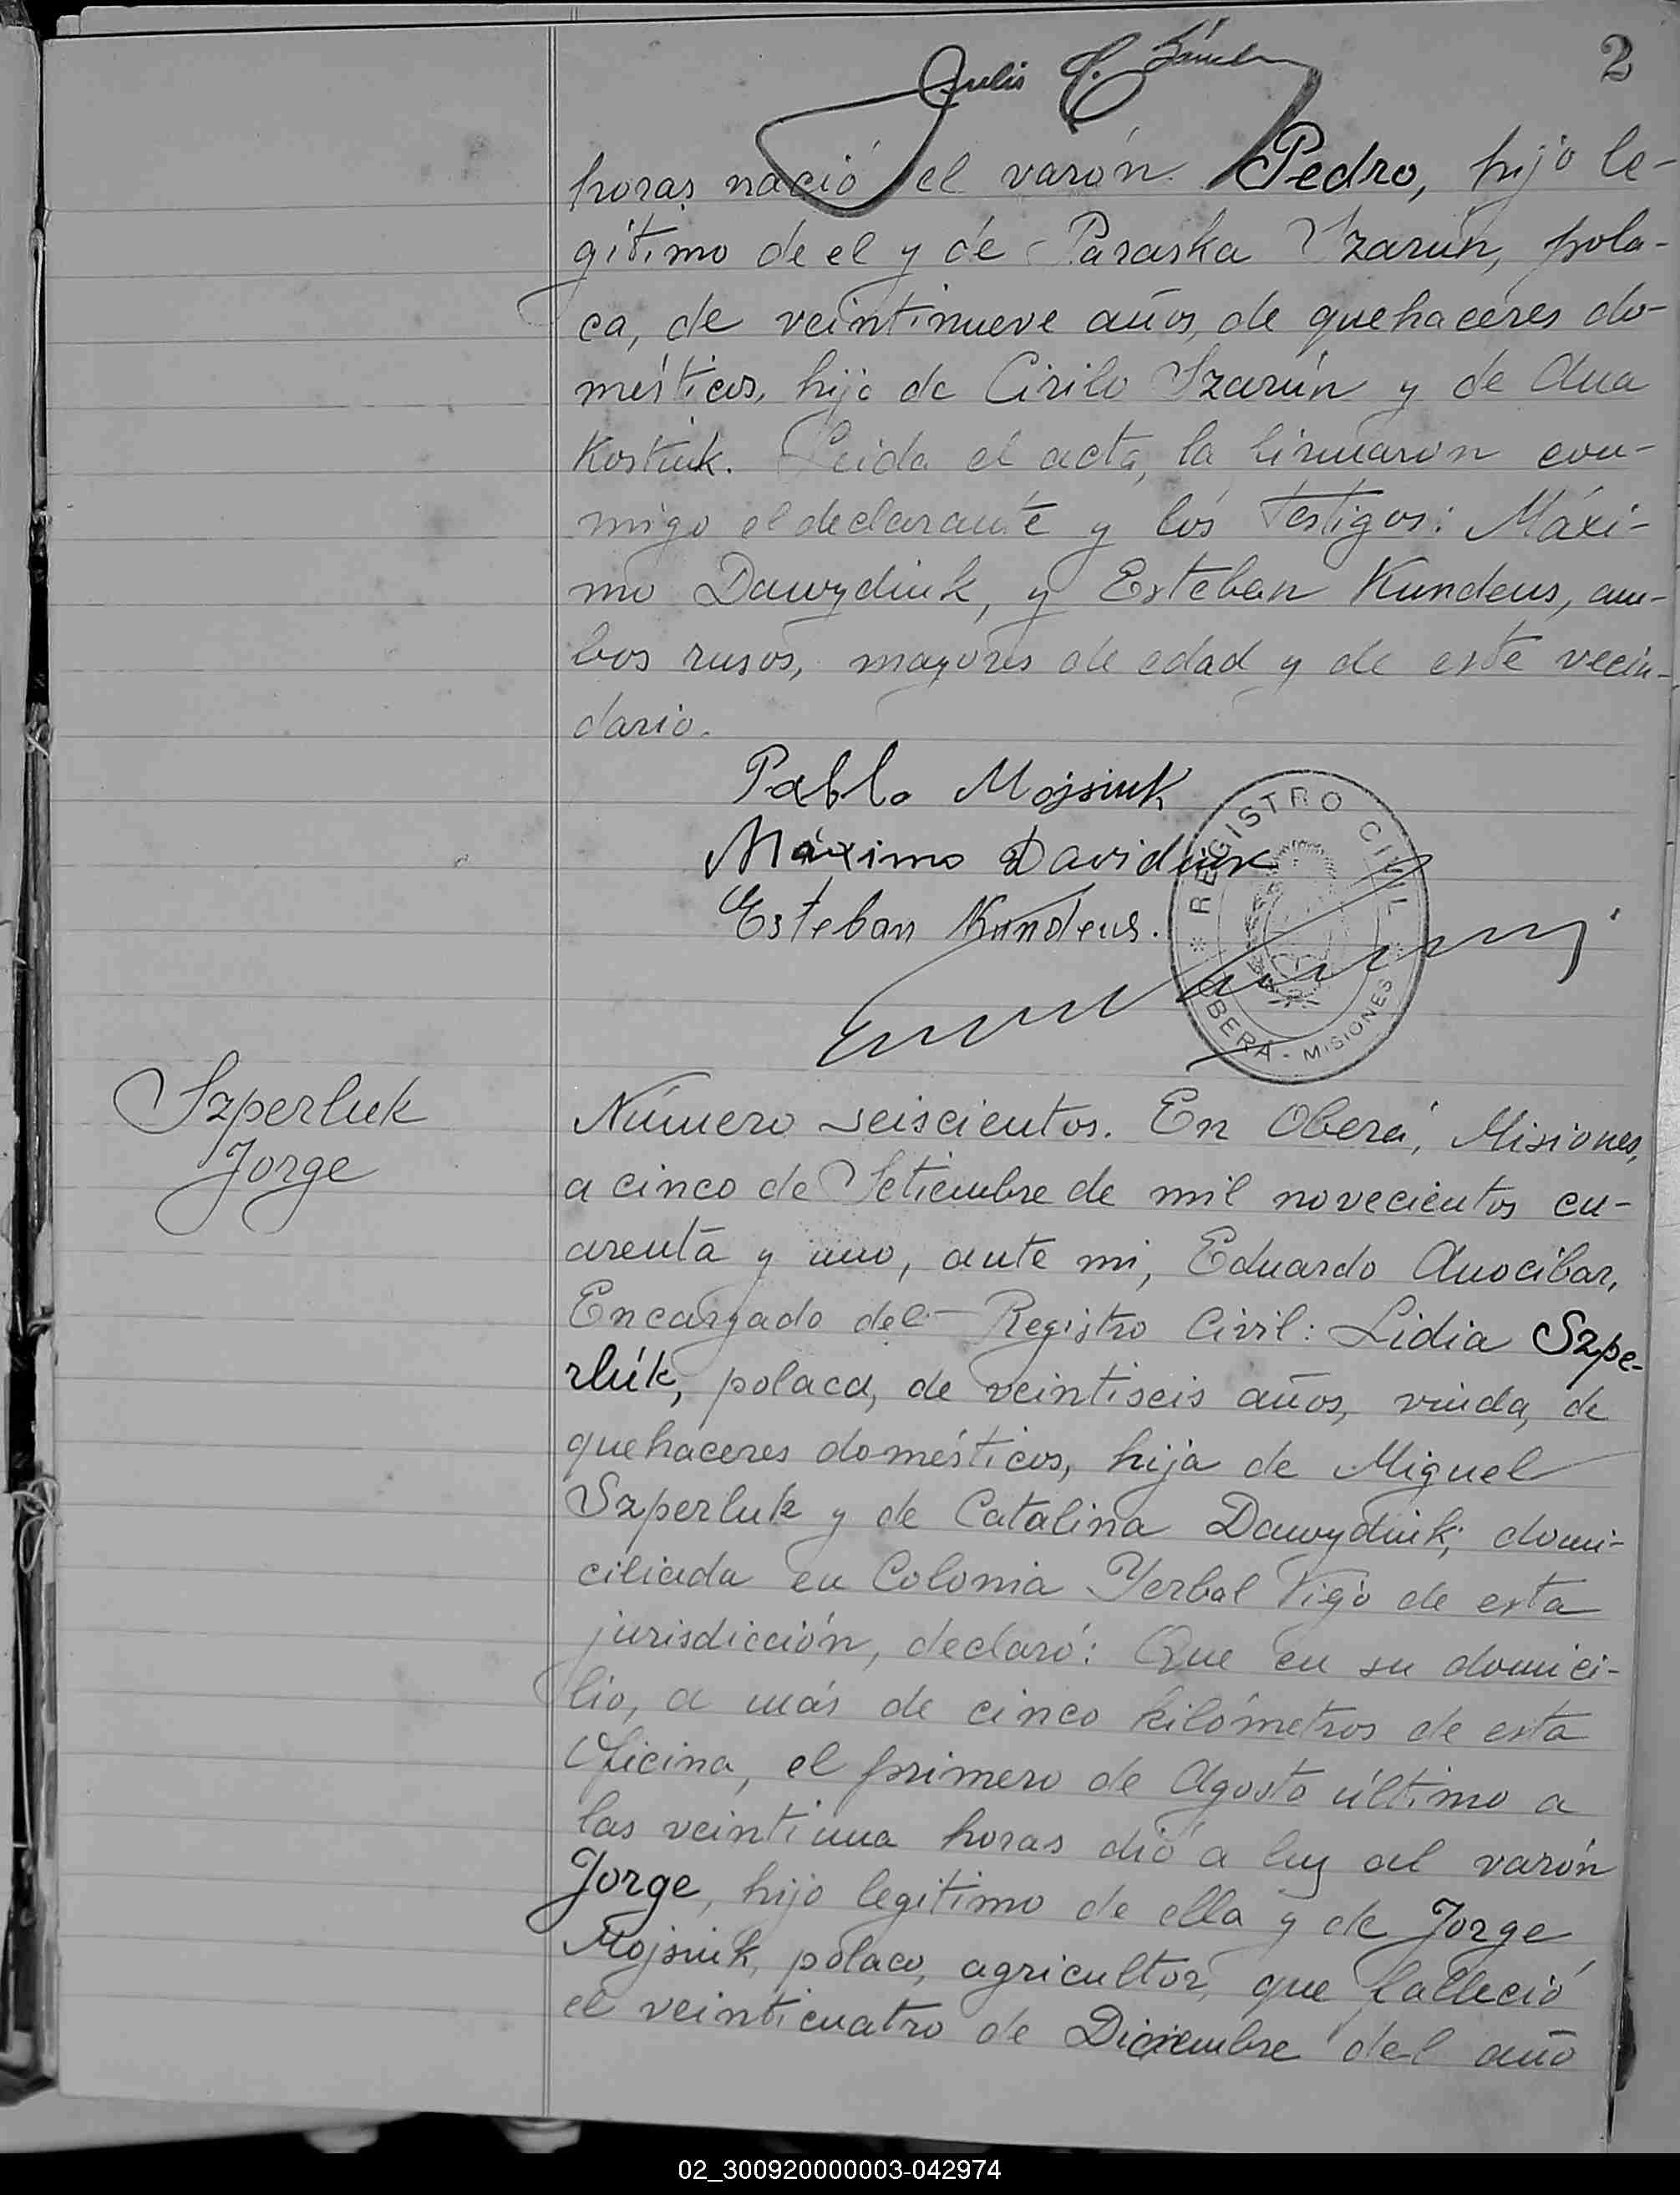 2
horas nació el varón Pedro, hijo le-
gítimo de el y de Paraska Szarún, pola-
ca, de veintinueve años, de quehaceres do-
mésticos, hija de Cirilo Szarún y de Ana
Kostiuk. Leida el acta, la firmaron con-
migo el declarante y los testigos: Máxi-
mo Dawydiuk, y Esteban Kundeus, am-
bos rusos, mayores de edad y de este vecin-
dario.
Pablo Mojsiuk
Máximo Davidiuk
Esteban Kundeus.
REGISTRO CIVIL
OBERA - MISIONES
Szperluk
Jorge
Número seiscientos. En Oberá, Misiones,
a cinco de Setiembre de mil novecientos cu-
arenta y uno, ante mi, Eduardo Anocibar,
Encargado del Registro Civil: Lidia Szpe-
rlúk, polaca, de veintiseis años, viuda, de
quehaceres domésticos, hija de Miguel
Szperluk y de Catalina Dawydiuk; domi-
ciliada en Colonia Yerbal Viejo de esta
jurisdicción, declaró: Que en su domici-
lio, a más de cinco kilómetros de esta
Oficina, el primero de Agosto último a
las veintiuna horas dió a luz al varón
Jorge, hijo legitimo de ella y de Jorge
Mojsiuk, polaco, agricultor, que falleció
el veinticuatro de Diciembre del año
02_300920000003-042974